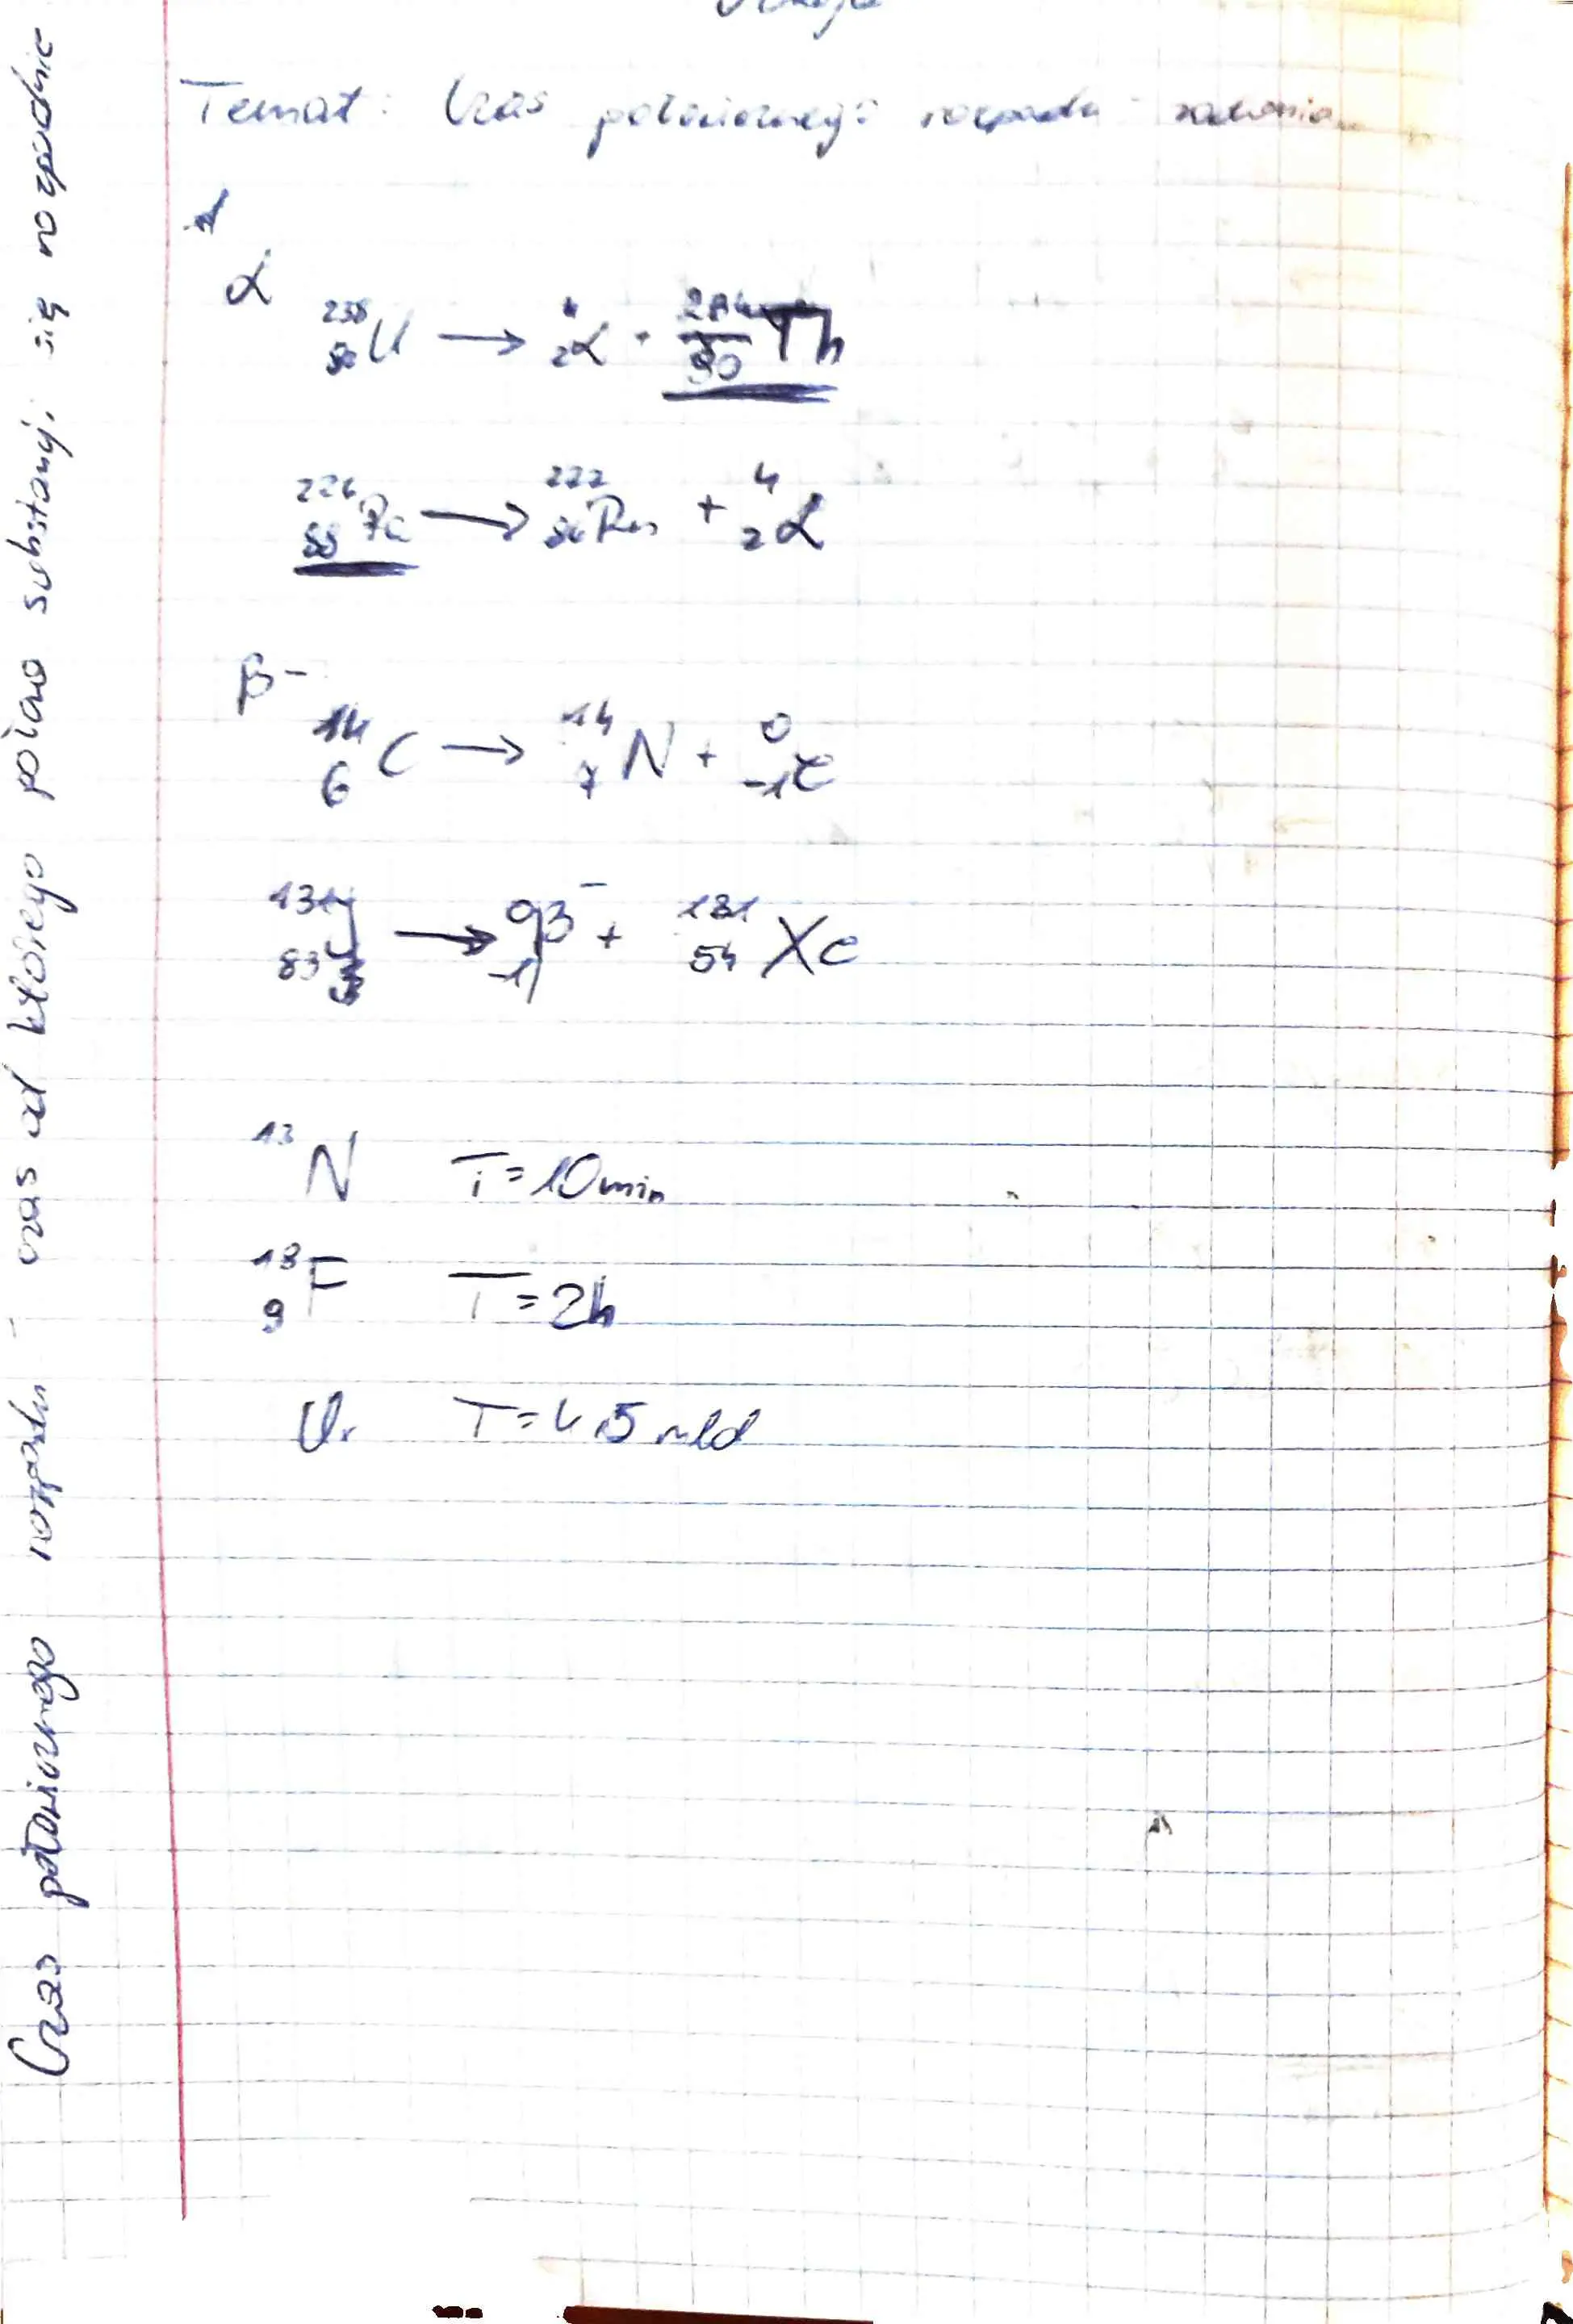 Temat: Czas połowicznego rozpadu - zadania
1
α
²³⁸₉₂U → ⁴₂α + ²³⁴₉₀Th
²²⁶₈₈Ra → ²²²₈₆Rn + ⁴₂α
β⁻
¹⁴₆C → ¹⁴₇N + ⁰₋₁e
¹³¹₈₃J → ⁰₋₁β⁻ + ¹³¹₅₄Xe
¹³N T=10min
¹⁸₉F T=2h
U. T=4,5 mld
Czas połowicznego rozpadu - czas od którego połowa substancji się rozpadnie